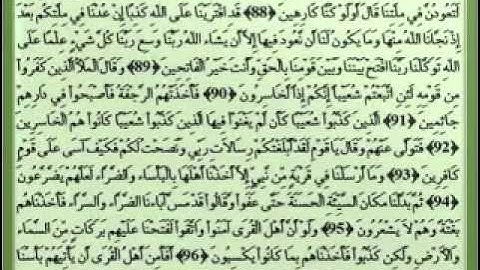 لَتَعُودُنَّ فِي مِلَّتِنَا قَالَ أَوَلَوْ كُنَّا كَارِهِينَ ﴿88﴾ قَدِ افْتَرَيْنَا عَلَى اللَّهِ كَذِبًا إِنْ عُدْنَا فِي مِلَّتِكُم بَعْدَ
إِذْ نَجَّانَا اللَّهُ مِنْهَا وَمَا يَكُونُ لَنَا أَن نَّعُودَ فِيهَا إِلَّا أَن يَشَاءَ اللَّهُ رَبُّنَا وَسِعَ رَبُّنَا كُلَّ شَيْءٍ عِلْمًا عَلَى
اللَّهِ تَوَكَّلْنَا رَبَّنَا افْتَحْ بَيْنَنَا وَبَيْنَ قَوْمِنَا بِالْحَقِّ وَأَنتَ خَيْرُ الْفَاتِحِينَ ﴿89﴾ وَقَالَ الْمَلَأُ الَّذِينَ كَفَرُوا
مِن قَوْمِهِ لَئِنِ اتَّبَعْتُمْ شُعَيْبًا إِنَّكُمْ إِذًا لَّخَاسِرُونَ ﴿90﴾ فَأَخَذَتْهُمُ الرَّجْفَةُ فَأَصْبَحُوا فِي دَارِهِمْ
جَاثِمِينَ ﴿91﴾ الَّذِينَ كَذَّبُوا شُعَيْبًا كَأَن لَّمْ يَغْنَوْا فِيهَا الَّذِينَ كَذَّبُوا شُعَيْبًا كَانُوا هُمُ الْخَاسِرِينَ
﴿92﴾ فَتَوَلَّى عَنْهُمْ وَقَالَ يَا قَوْمِ لَقَدْ أَبْلَغْتُكُمْ رِسَالَاتِ رَبِّي وَنَصَحْتُ لَكُمْ فَكَيْفَ آسَى عَلَى قَوْمٍ
كَافِرِينَ ﴿93﴾ وَمَا أَرْسَلْنَا فِي قَرْيَةٍ مِّن نَّبِيٍّ إِلَّا أَخَذْنَا أَهْلَهَا بِالْبَأْسَاءِ وَالضَّرَّاءِ لَعَلَّهُمْ يَضَّرَّعُونَ
﴿94﴾ ثُمَّ بَدَّلْنَا مَكَانَ السَّيِّئَةِ الْحَسَنَةَ حَتَّى عَفَوا وَّقَالُوا قَدْ مَسَّ آبَاءَنَا الضَّرَّاءُ وَالسَّرَّاءُ فَأَخَذْنَاهُم
بَغْتَةً وَهُمْ لَا يَشْعُرُونَ ﴿95﴾ وَلَوْ أَنَّ أَهْلَ الْقُرَى آمَنُوا وَاتَّقَوْا لَفَتَحْنَا عَلَيْهِم بَرَكَاتٍ مِّنَ السَّمَاءِ
وَالْأَرْضِ وَلَكِن كَذَّبُوا فَأَخَذْنَاهُم بِمَا كَانُوا يَكْسِبُونَ ﴿96﴾ أَفَأَمِنَ أَهْلُ الْقُرَى أَن يَأْتِيَهُم بَأْسُنَا